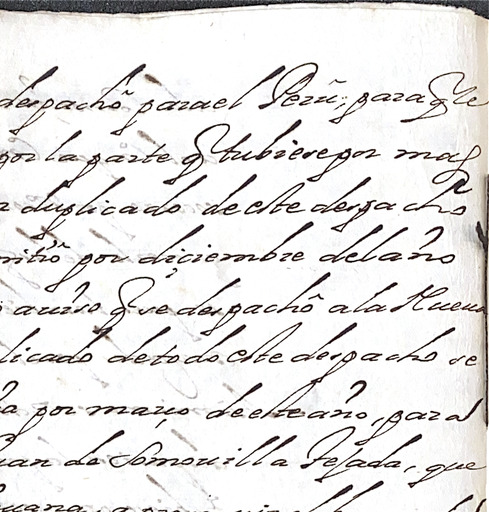 despachò para el Perù; para q̃ le
por la parte q̃ tubiese por mas
duplicado de este despachò
mitiò por diciembre del año
auiso q̃ se despachò a la Nueua
licado de todo este despacho se
por março de este año, para
Juan de Somouilla Tejada, que